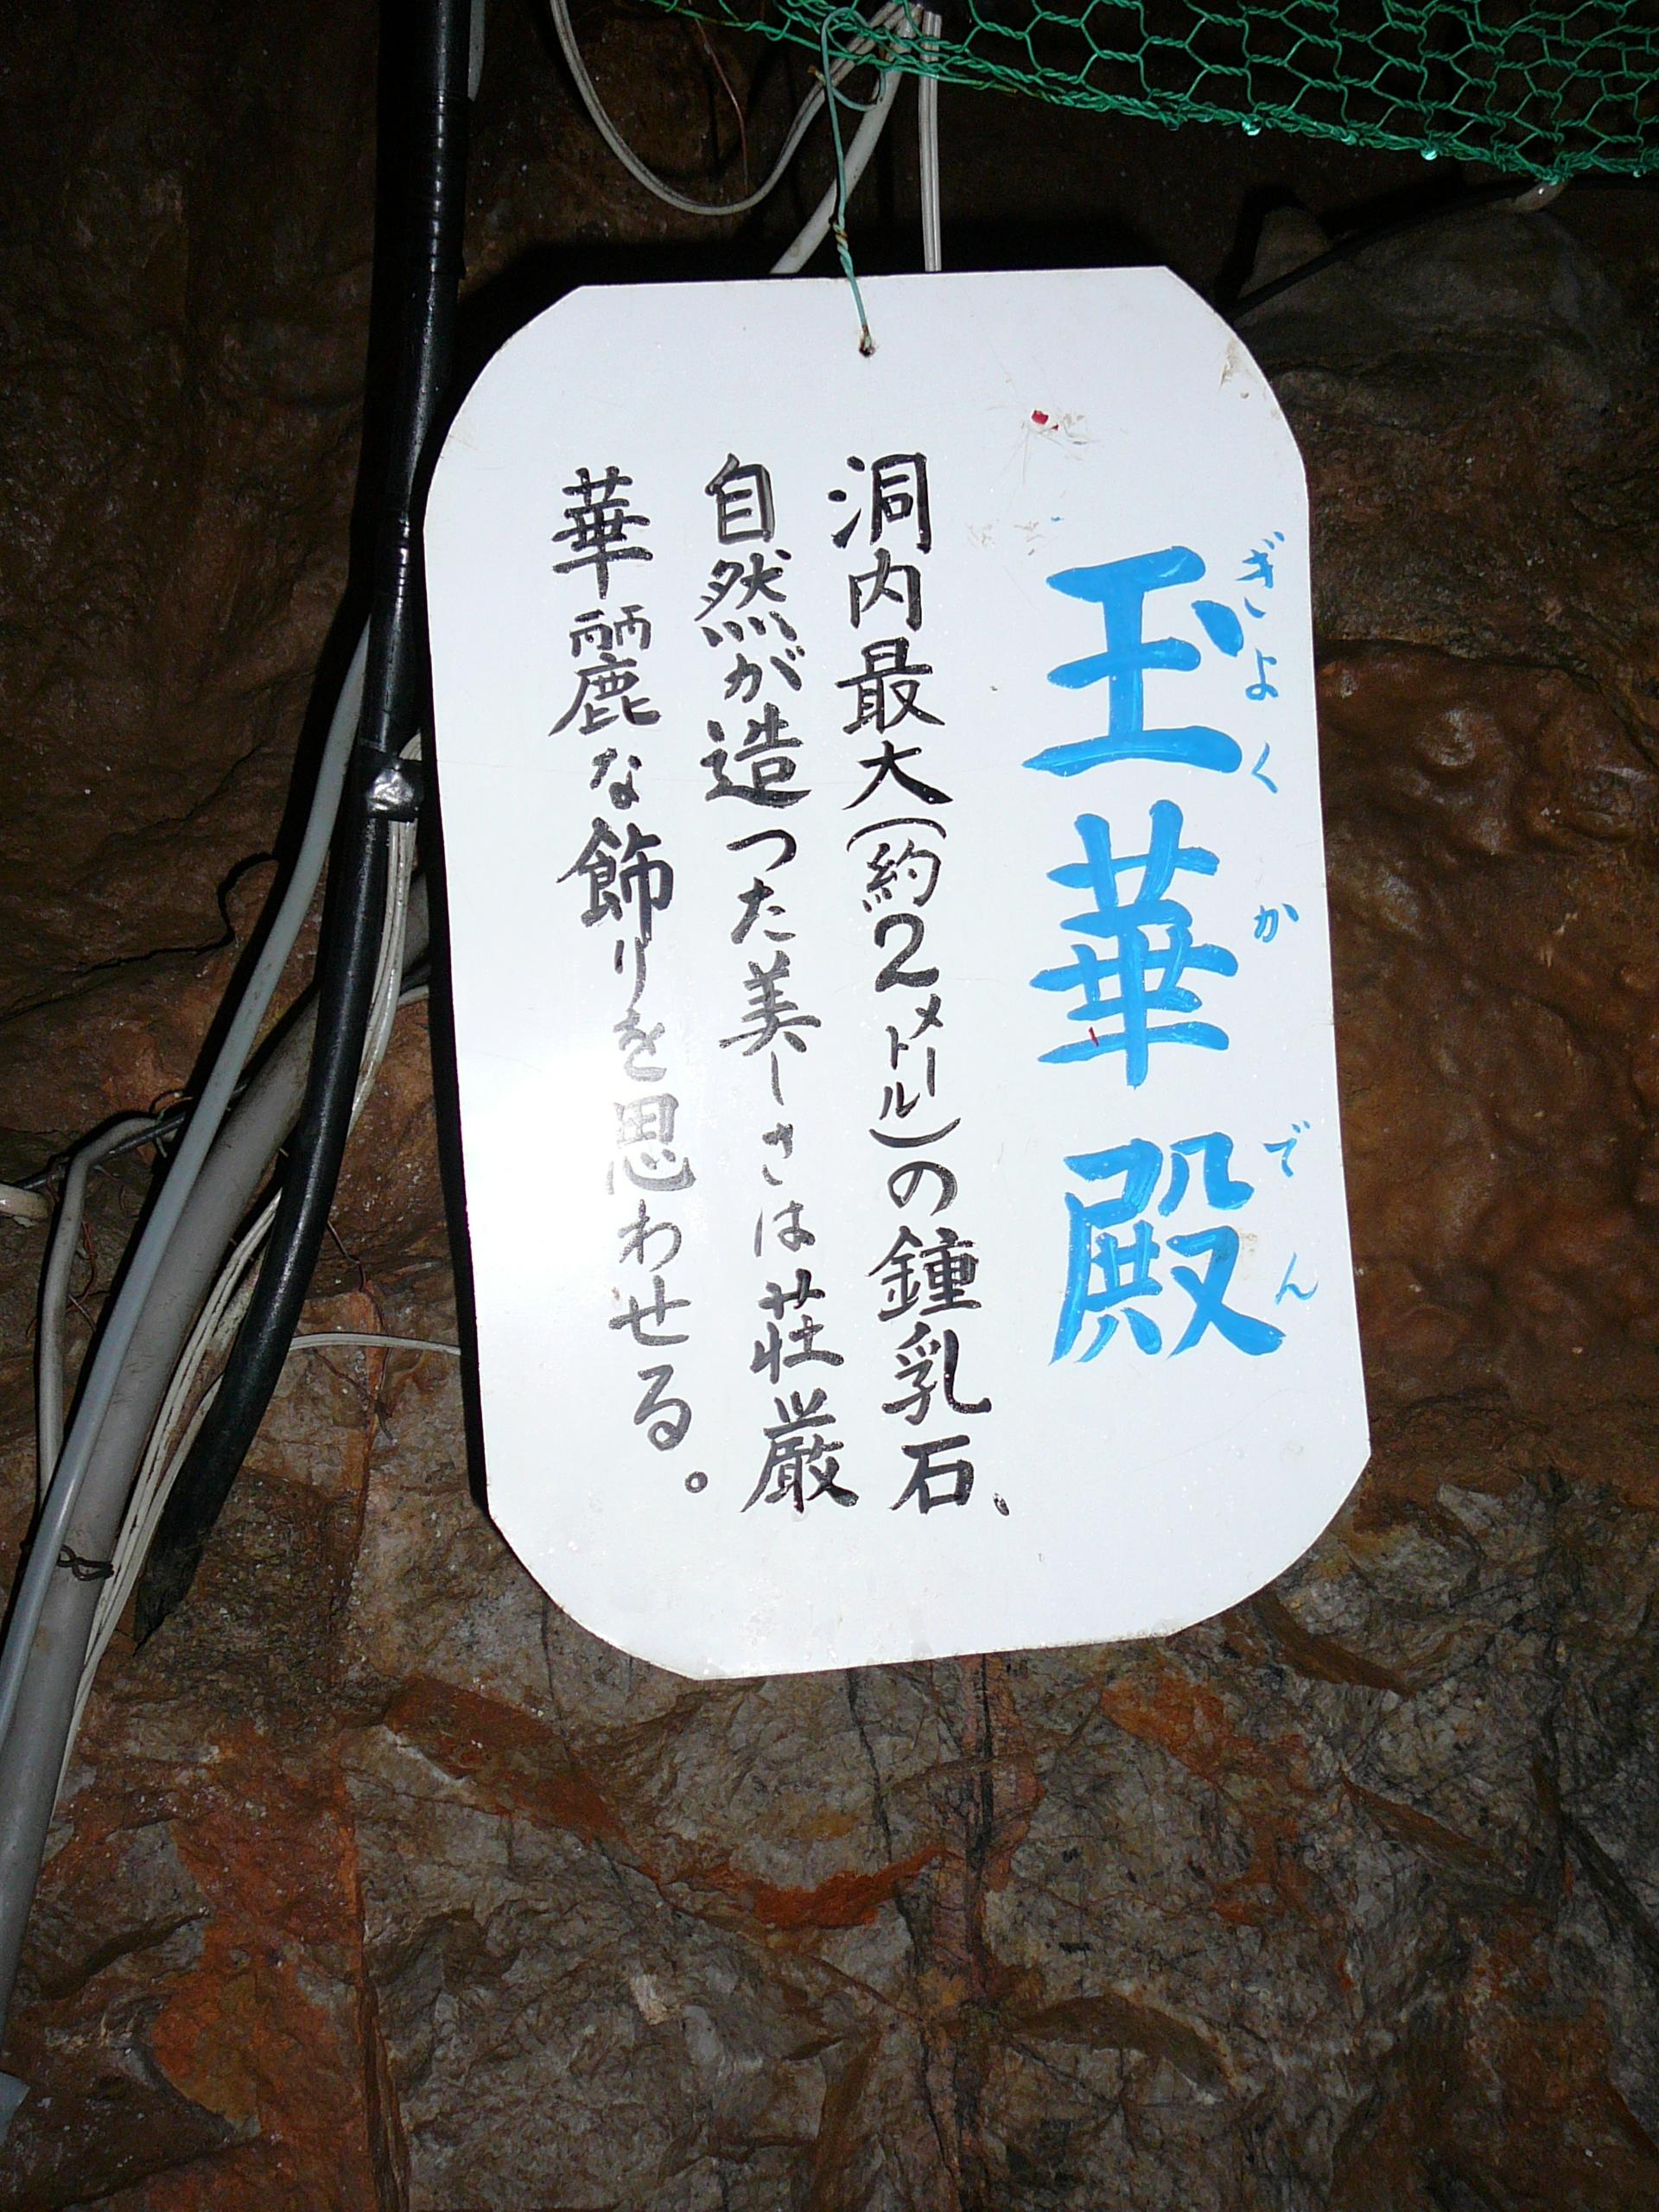 玉華殿
ぎよくかでん
洞内最大(約2メートル)の鍾乳石、
自然が造つた美しさは荘厳
華麗な飾りを思わせる。